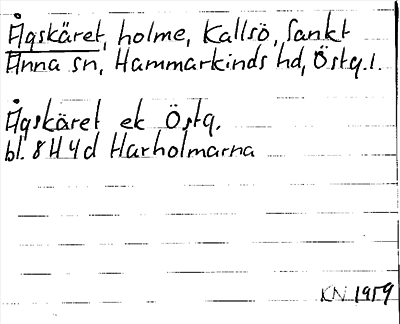 Ågskäret, holme, Kallsö, Sankt
Anna sn, Hammarkinds hd, Östg.l.
Ågskäret ek Östg.
bl. 8H4d Harholmarna
KN 1959